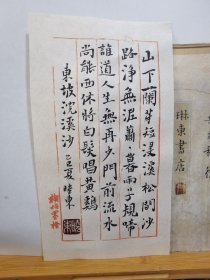 山下蘭芽短浸溪松間沙
路淨無泥蕭〻暮雨子規啼
誰道人生無再少門前流水
尚能西休將白髮唱黃鷄
東坡浣溪沙